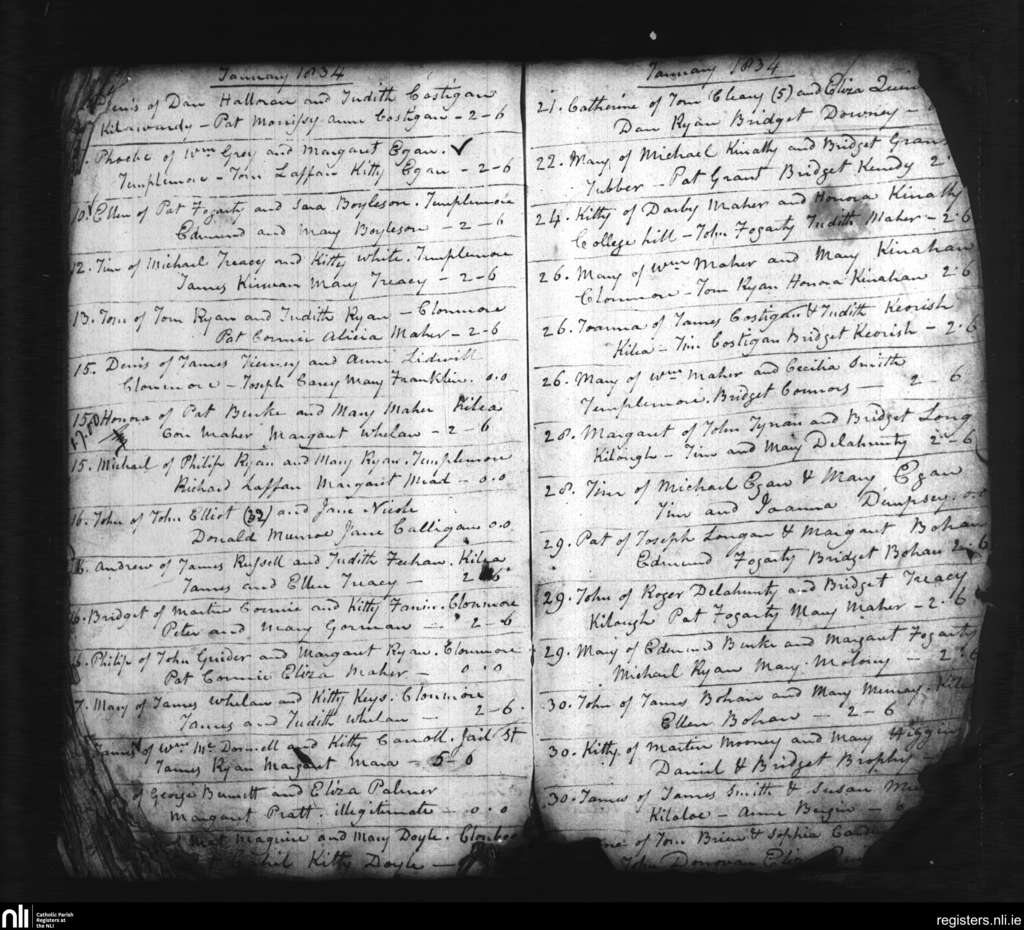 January 1834
Denis of Dan Halloran and Judith Costigan
Kilawardy - Pat Morrissy Anne Costigan - 2-6
Phoebe of Wm Grey and Margaret Egan. ✓
Templemore - Tom Laffan Kitty Egan - 2-6
10. Ellen of Pat Fogarty and Sara Boyleson. Templemore
Edmund and Mary Boyleson - 2-6
12. Tim of Michael Treacy and Kitty White. Templemore
James Kirwan Mary Treacy - 2-6
13. Tom of Tom Ryan and Judith Ryan - Clonmore
Pat Cormic Alicia Maher - 2-6
15. Denis of James Tierney and Anne Lidwill
Clonmore - Joseph Carey Mary Franklin. 0.0
15. Honora of Pat Burke and Mary Maher Kilea
Con Maher Margaret Whelan - 2-6
15. Michael of Philip Ryan and Mary Ryan. Templemore
Richard Laffan Margaret Mead - 0.0
16. John of John Elliot (32) and Jane Nicols
Donald Munroe Jane Calligan 0.0
16. Andrew of James Russell and Judith Feehan. Kilea
James and Ellen Treacy - 2-6
16. Bridget of Martin Cormic and Kitty Fanin. Clonmore
Peter and Mary Gorman - 2-6
16. Philip of John Guider and Margaret Ryan. Clonmore
Pat Cormic Eliza Maher - 0.0
17. Mary of James Whelan and Kitty Keys. Clonmore
James and Judith Whelan - 2-6
James of Wm McDonnell and Kitty Carroll. Jail St
James Ryan Margaret Mara - 5-0
of George Bennett and Eliza Palmer
Margaret Pratt. illegitimate - 0.0
Mat Maguire and Mary Doyle.
Cahil Kitty Doyle -
January 1834
21. Catherine of Tom Cleary (5) and Eliza Quin
Dan Ryan Bridget Downey -
22. Mary of Michael Kinathy and Bridget Grant
Tubber - Pat Grant Bridget Kenedy 2
24. Kitty of Darby Maher and Honora Kinathy
College hill - John Fogarty Judith Maher - 2.6
26. Mary of Wm Maher and Mary Kinahan
Clonmore - Tom Ryan Honora Kinahan 2.6
26. Joanna of James Costigan & Judith Keorish
Kilea - Tim Costigan Bridget Keorish - 2.6
26. Mary of Wm Maher and Cecilia Smith
Templemore. Bridget Connors - 2-6
28. Margaret of John Tynan and Bridget Long
Kilough - Tim and Mary Delahunty 2-6
28. Tim of Michael Egan & Mary Egan
Tim and Joanna Dempsey. 0.0
29. Pat of Joseph Longan & Margaret Bohan
Edmund Fogarty Bridget Bohan 2.6
29. John of Roger Delahunty and Bridget Treacy
Kilough Pat Fogarty Mary Maher - 2.6
29. Mary of Edmund Burke and Margaret Fogarty
Michael Ryan Mary Molony - 2.6
30. John of James Bohan and Mary Murray. Kilea
Ellen Bohan - 2-6
30. Kitty of Martin Mooney and Mary Higgin
Daniel & Bridget Brophy -
30. James of James Smith & Susan
Kilaloe - Anne Bergin -
of Tom Brien & Sophia
John Donovan Eliza
nli
Catholic Parish
Registers at
the NLI
registers.nli.ie